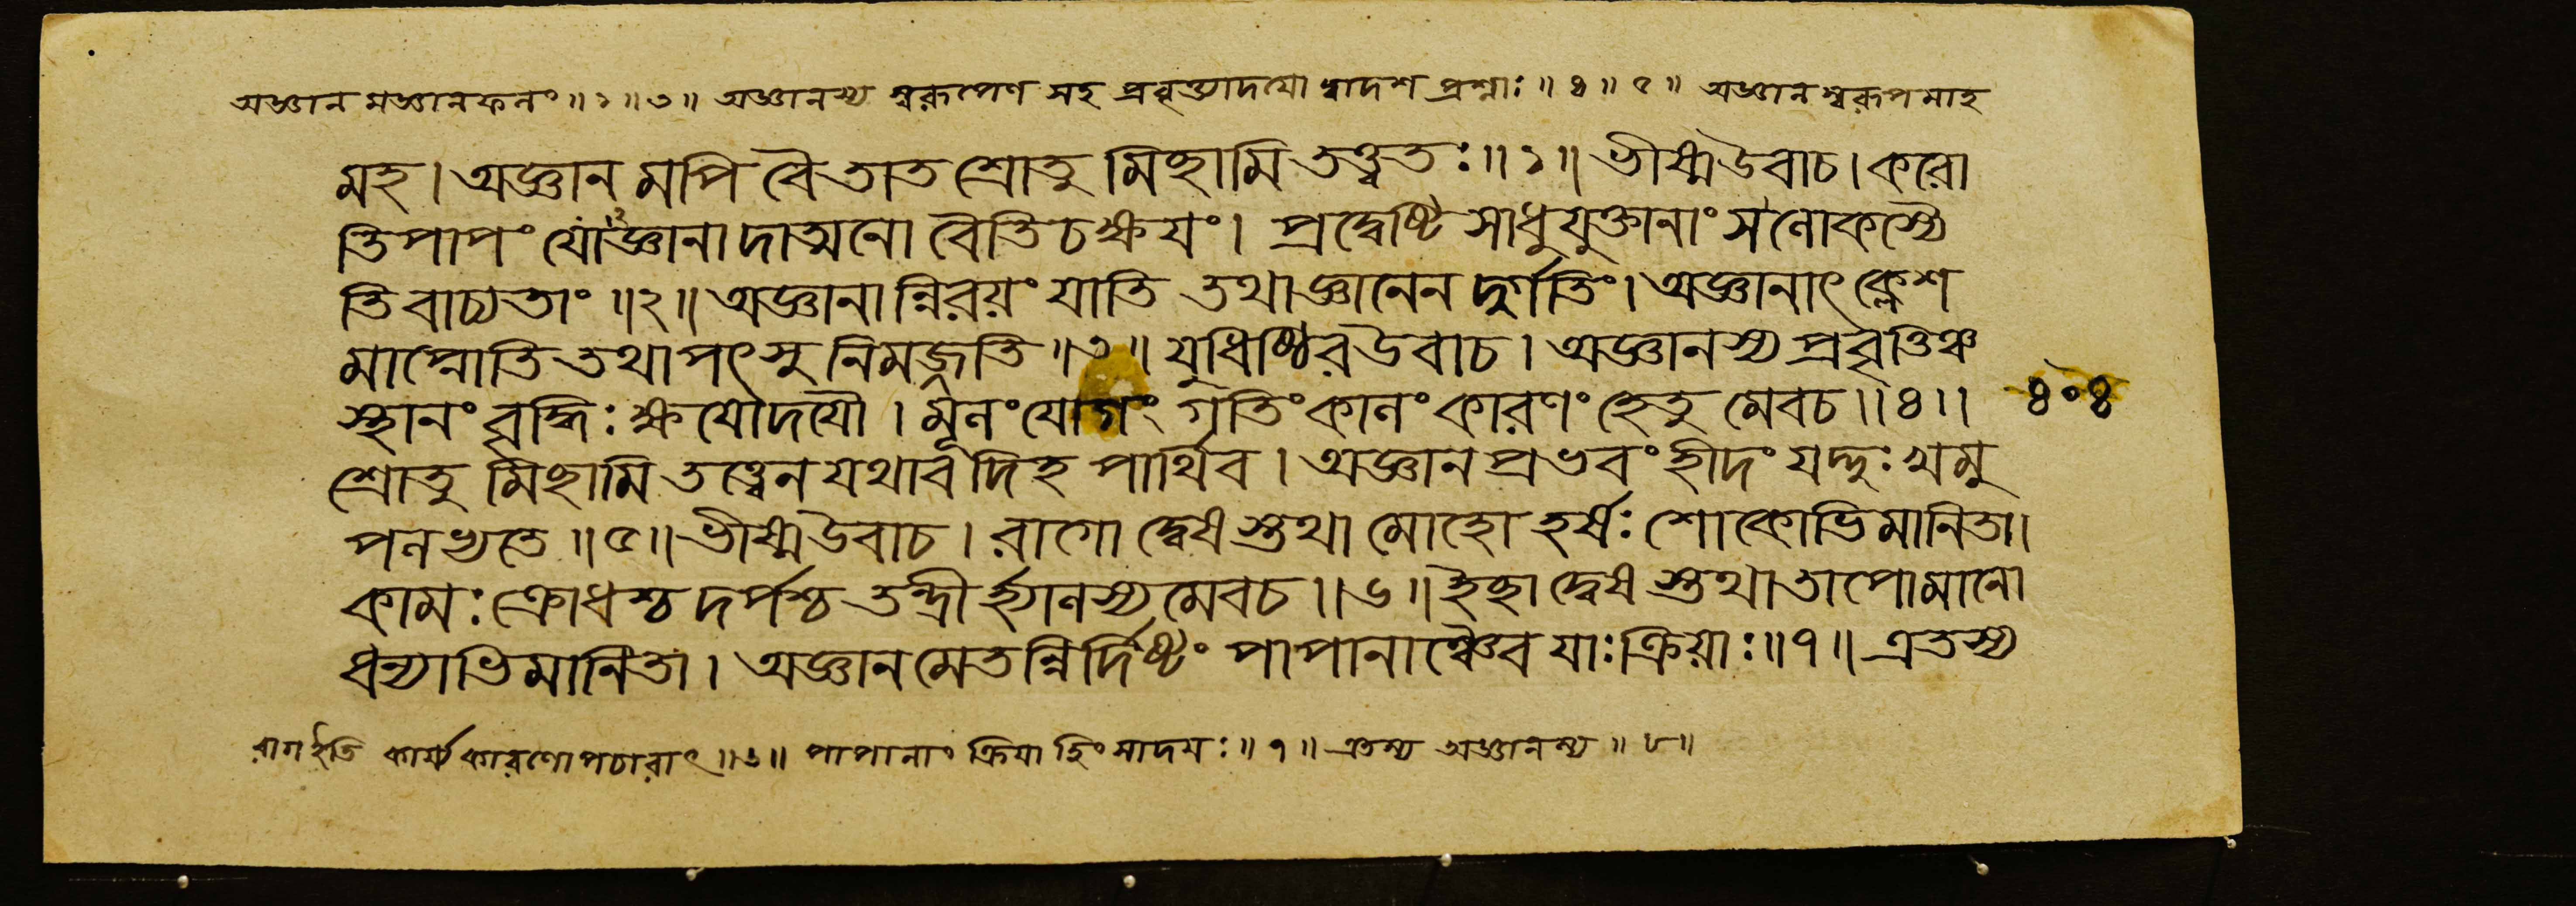 অজ্ঞান মজ্ঞানফলং॥১॥৩॥ অজ্ঞানস্য স্বরূপেণ সহ প্রবৃত্ত্যাদযো দ্বাদশ প্রশ্নাঃ॥৪॥৫॥ অজ্ঞান স্বরূপ মাহ
মহ। অজ্ঞান মপি বৈ তাত শ্রোতু মিছামি তত্ত্বতঃ॥১॥ ভীষ্ম উবাচ। করো
তি পাপং যোঽজ্ঞানা দাত্মনো বেত্তি চ ক্ষযং। প্রদ্বেষ্টি সাধুযুক্তানাং স লোকস্যৈ
তি বাচ্যতাং॥২॥ অজ্ঞানান্নিরয়ং যাতি তথাজ্ঞানেন দুর্গতিং। অজ্ঞানাৎ ক্লেশ
মাপ্নোতি তথাপৎসু নিমজ্জতি॥৩॥ যুধিষ্ঠির উবাচ। অজ্ঞানস্য প্রবৃত্তিঞ্চ
স্থানং বৃদ্ধিঃ ক্ষযোদযৌ। মূলং যোগং গতিং কালং কারণং হেতু মেব চ॥৪॥ ৪০৪
শ্রোতু মিছামি তত্ত্বেন যথাবদিহ পার্থিব। অজ্ঞান প্রভবং হীদং যদ্দুঃখমু
পলভ্যতে॥৫॥ ভীষ্ম উবাচ। রাগো দ্বেষ স্তথা মোহো হর্ষঃ শোকোভিমানিতা।
কামঃ ক্রোধশ্চ দর্পশ্চ তন্দ্রীর্হ্যালস্য মেব চ॥৬॥ ইছা দ্বেষ স্তথা তাপো মানো
ধন্যাভিমানিতা। অজ্ঞান মেতন্নির্দিষ্টং পাপানাঞ্চৈব যাঃ ক্রিয়াঃ॥৭॥ এতস্য
রাগ ইতি কার্য্য কারণোপচারাৎ॥৬॥ পাপানাং ক্রিযা হিংসাদযঃ॥৭॥ এতস্য অজ্ঞানস্য॥৮॥